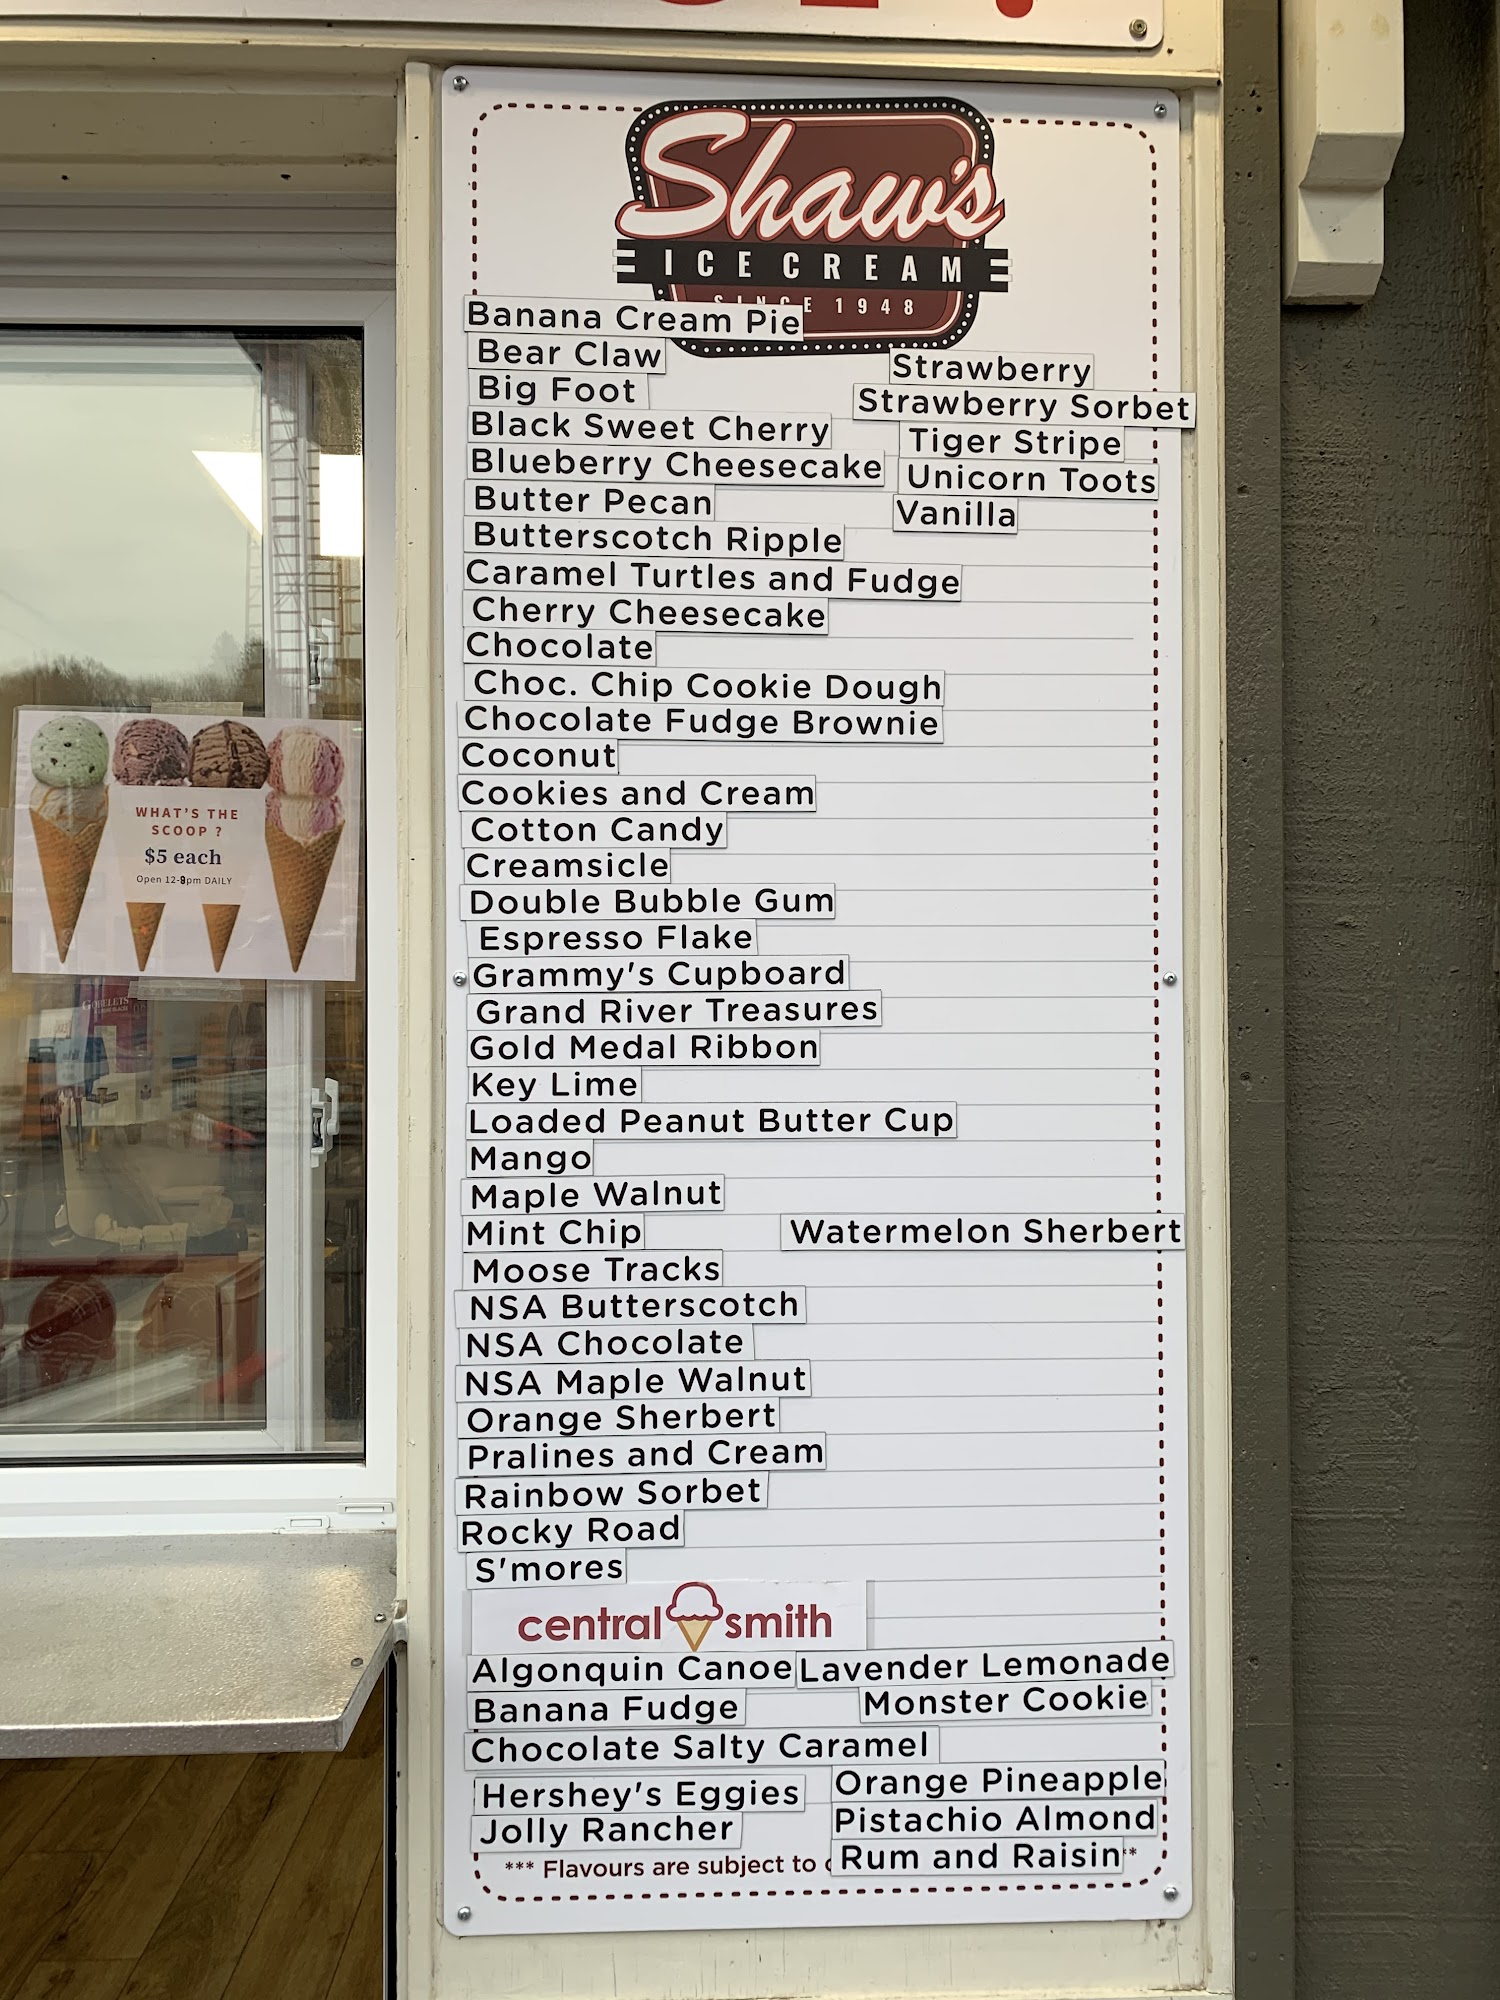 WHAT'S THE
SCOOP ?
$5 each
Open 12-9pm DAILY
Shaw's
ICE CREAM
SINCE 1948
Banana Cream Pie
Bear Claw
Big Foot
Black Sweet Cherry
Blueberry Cheesecake
Butter Pecan
Butterscotch Ripple
Caramel Turtles and Fudge
Cherry Cheesecake
Chocolate
Choc. Chip Cookie Dough
Chocolate Fudge Brownie
Coconut
Cookies and Cream
Cotton Candy
Creamsicle
Double Bubble Gum
Espresso Flake
Grammy's Cupboard
Grand River Treasures
Gold Medal Ribbon
Key Lime
Loaded Peanut Butter Cup
Mango
Maple Walnut
Mint Chip
Moose Tracks
NSA Butterscotch
NSA Chocolate
NSA Maple Walnut
Orange Sherbert
Pralines and Cream
Rainbow Sorbet
Rocky Road
S'mores
Strawberry
Strawberry Sorbet
Tiger Stripe
Unicorn Toots
Vanilla
Watermelon Sherbert
central smith
Algonquin Canoe
Banana Fudge
Chocolate Salty Caramel
Hershey's Eggies
Jolly Rancher
Lavender Lemonade
Monster Cookie
Orange Pineapple
Pistachio Almond
Rum and Raisin
*** Flavours are subject to